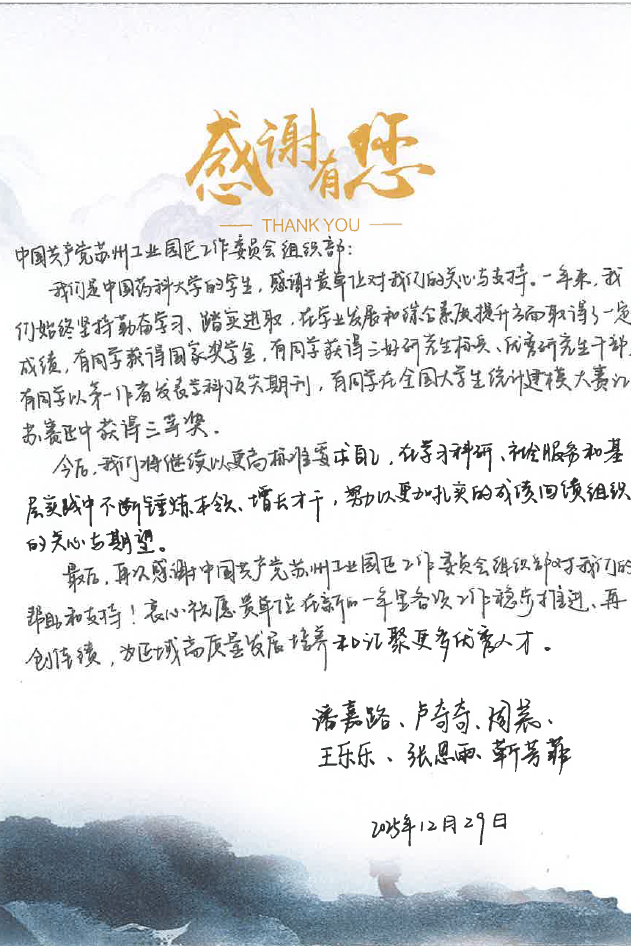 感谢有您
THANK YOU
中国共产党苏州工业园区工作委员会组织部：
我们是中国药科大学的学生，感谢贵单位对我们的关心与支持。一年来，我
们始终坚持勤奋学习、踏实进取，在学业发展和综合素质提升方面取得了一定
成绩，有同学获得国家奖学金，有同学获得三好研究生标兵、优秀研究生干部，
有同学以第一作者发表学科顶尖期刊，有同学在全国大学生统计建模大赛江
苏赛区中获得三等奖。
今后，我们将继续以更高标准要求自己，在学习科研、社会服务和基
层实践中不断锤炼本领、增长才干，努力以更加扎实的成绩回馈组织
的关心与期望。
最后，再次感谢中国共产党苏州工业园区工作委员会组织部对我们的
帮助和支持！衷心祝愿贵单位在新的一年里各项工作稳步推进、再
创佳绩，为区域高质量发展培养和汇聚更多优秀人才。
潘嘉路、卢奇奇、周晨、
王乐乐、张恩雨、靳芳菲
2025年12月29日